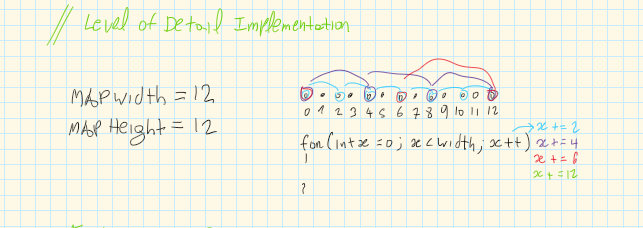 // Level of Detail Implementation
MAP width = 12
MAP Height = 12
0 1 2 3 4 5 6 7 8 9 10 11 12
for (int x = 0; x < width; x++)
x += 2
x += 4
x += 6
x += 12